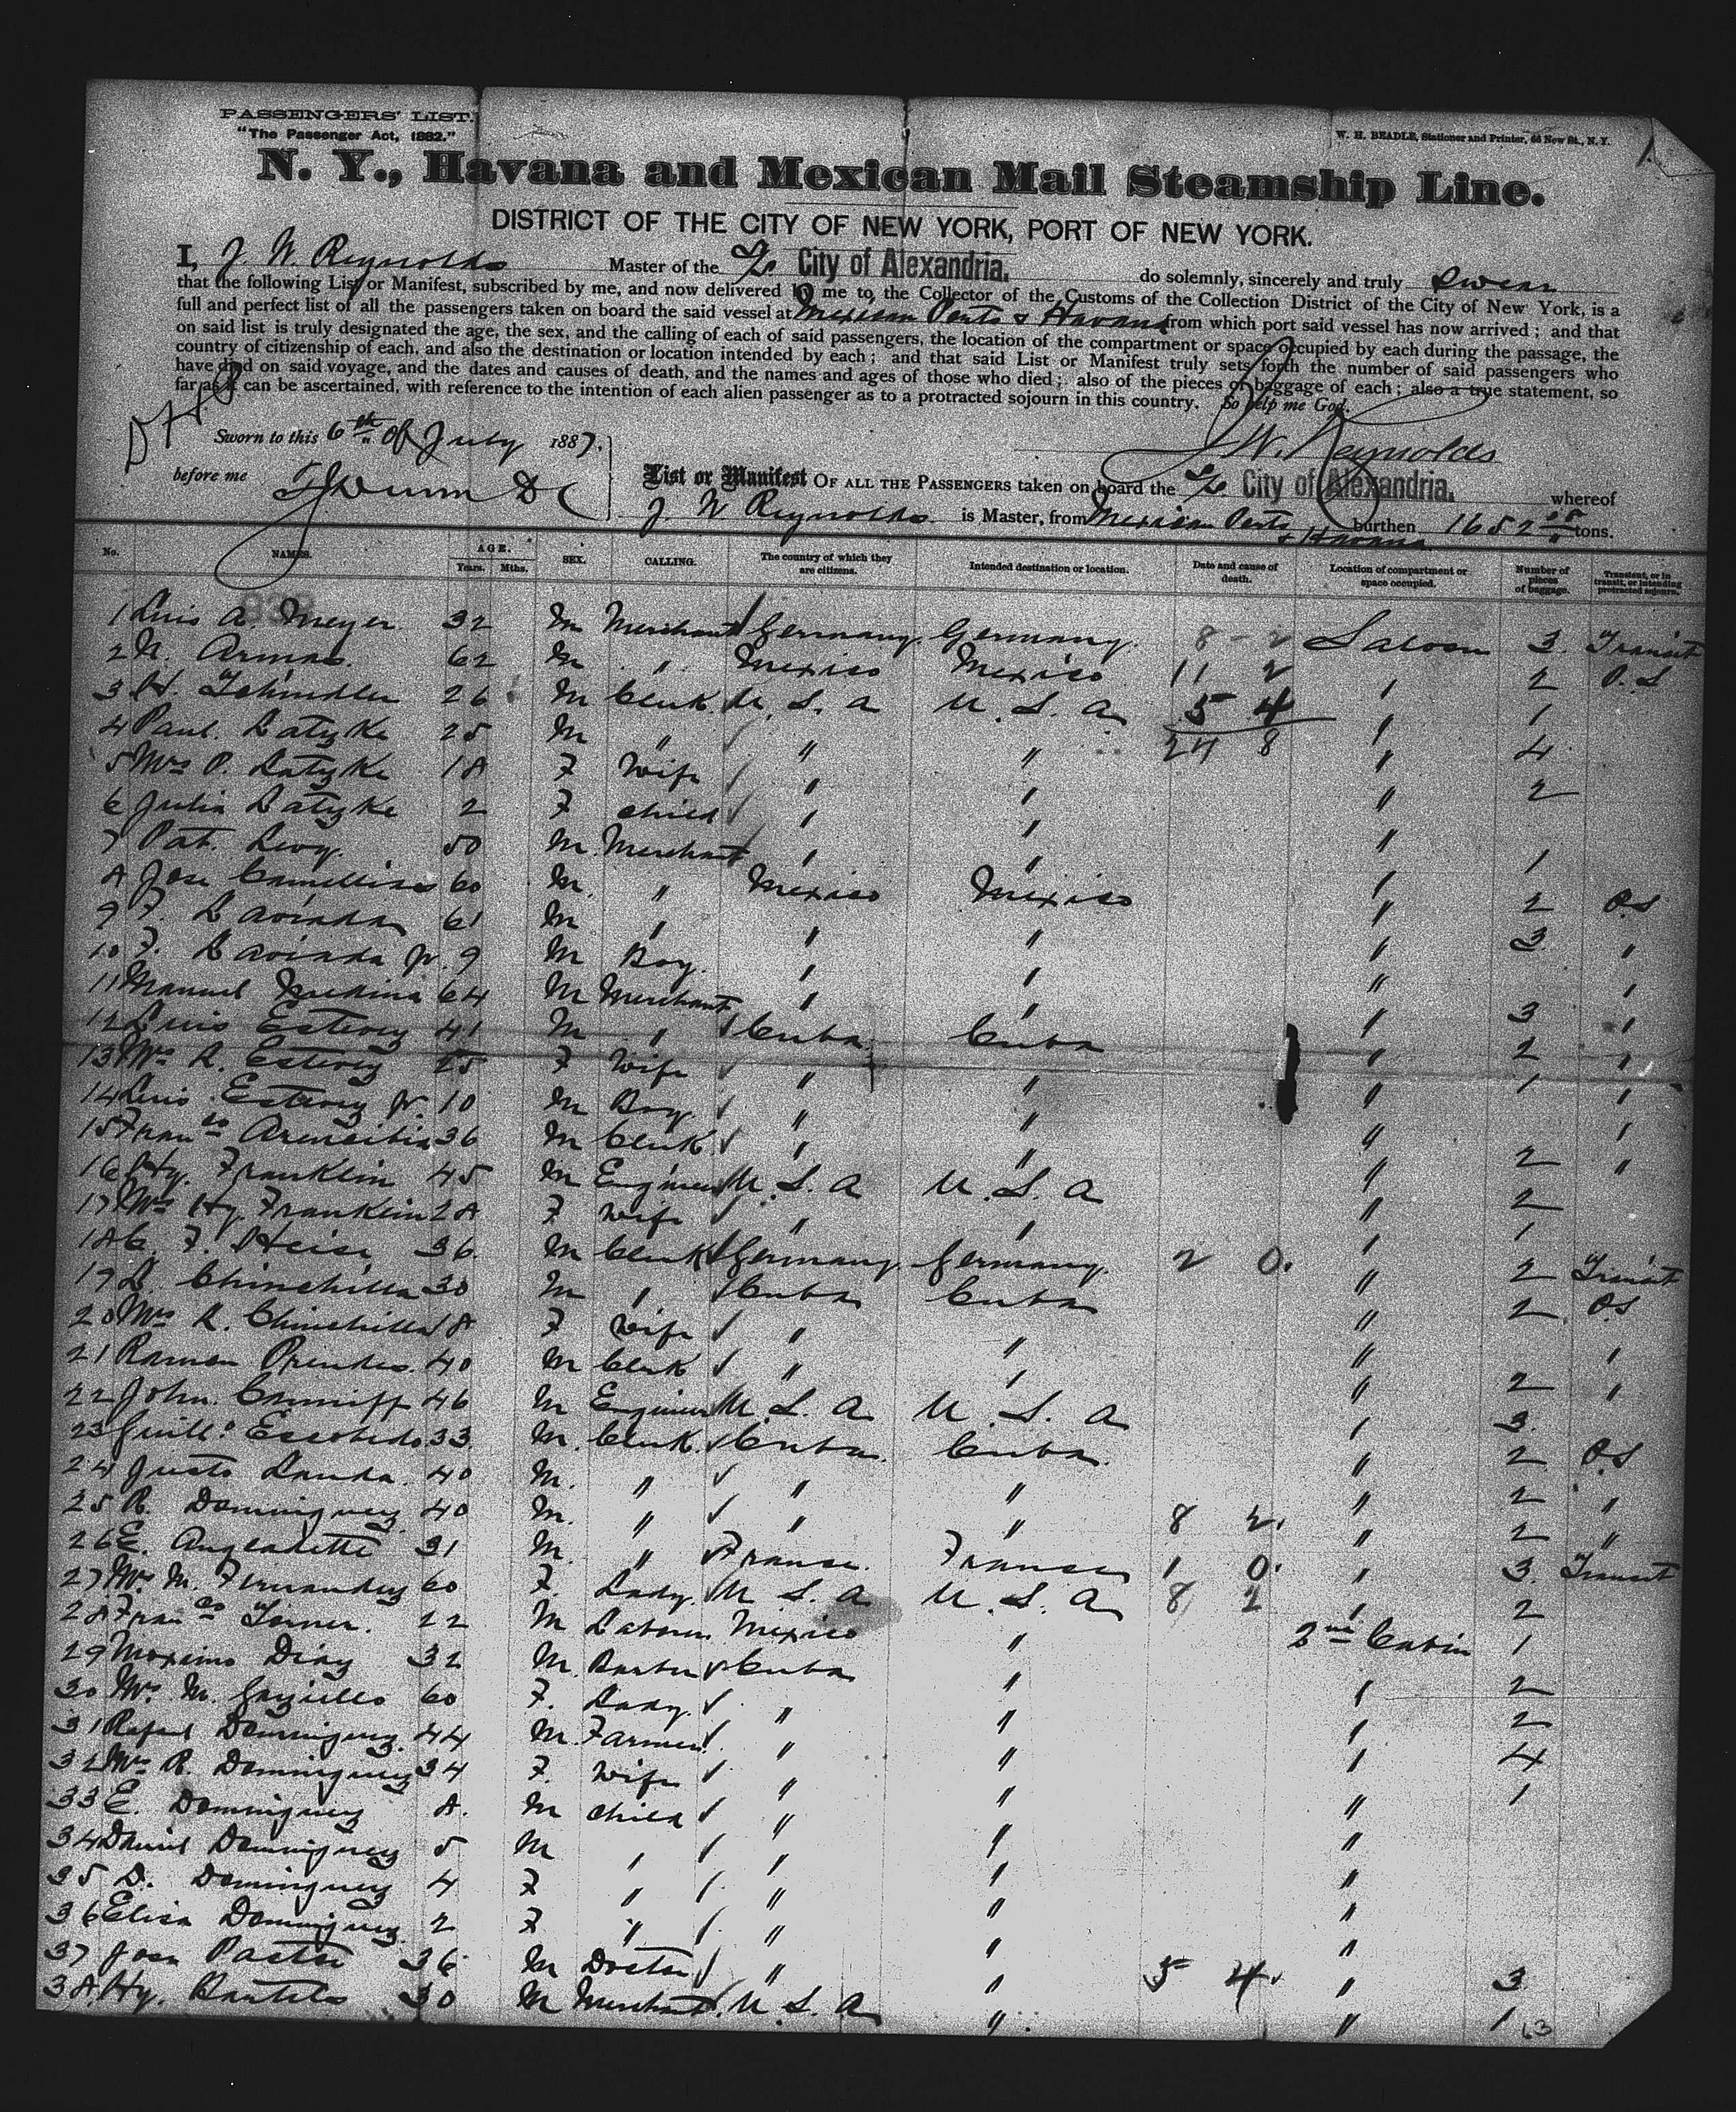 PASSENGERS' LIST.
"The Passenger Act, 1882."
W. H. BEADLE, Stationer and Printer, 66 New St., N. Y.
N. Y., Havana and Mexican Mail Steamship Line.
DISTRICT OF THE CITY OF NEW YORK, PORT OF NEW YORK.
I, J. W. Reynolds Master of the City of Alexandria, do solemnly, sincerely and truly swear
that the following List or Manifest, subscribed by me, and now delivered by me to the Collector of the Customs of the Collection District of the City of New York, is a
full and perfect list of all the passengers taken on board the said vessel at Mexican Ports & Havana from which port said vessel has now arrived; and that
on said list is truly designated the age, the sex, and the calling of each of said passengers, the location of the compartment or space occupied by each during the passage, the
country of citizenship of each, and also the destination or location intended by each; and that said List or Manifest truly sets forth the number of said passengers who
have died on said voyage, and the dates and causes of death, and the names and ages of those who died; also of the pieces of baggage of each; also a true statement, so
far as it can be ascertained, with reference to the intention of each alien passenger as to a protracted sojourn in this country. So help me God.
Sworn to this 6th of July 1887. J. W. Reynolds
before me
List or Manifest OF ALL THE PASSENGERS taken on board the City of Alexandria, whereof
J. W. Reynolds is Master, from Mexican Ports & Havana burthen 1652 tons.
No. NAMES. AGE. Years. Mths. SEX. CALLING. The country of which they are citizens. Intended destination or location. Date and cause of death. Location of compartment or space occupied. Number of pieces of baggage. Transient, or in transit, or intending protracted sojourn.
1 Luis A. Meyer 32 M Merchant Germany. Germany. 8 - 2 Saloon 3. Transit
2 N. Armas. 62 M " Mexico Mexico 11 2 " 2 P.S
3 H. Schindler 26 M Clerk. U. S. A U. S. A 5 4 " 1
4 Paul Latyke 25 M " " " 24 8 " 4
5 Mrs P. Latyke 18 F Wife " " " 2
6 Julia Latyke 2 F Child " " "
7 Pat. Levy. 50 M. Merchant " " " 1
8 Jose 60 M. " Mexico Mexico " 2 P.S
9 F. Lavinda 61 M " " " " 3 "
10 F. Lavinda Jr. 9 M Boy. " " " "
11 Manuel Medina 64 M Merchant " " " 3 "
12 Luis Estevez 41 M " Cuba Cuba " 2 "
13 Mrs L. Estevez 25 F Wife " " " 1 "
14 Luis Estevez Jr. 10 M Boy " " " "
15 Franco Arencibia 36 M Clerk " " " 2 "
16 Hy. Franklin 45 M Engineer U. S. A U. S. A " 2
17 Mrs Hy. Franklin 28 F Wife " " " 1
18 C. F. Heise 36 M Clerk Germany Germany. 2 0. " 2 Transit
19 L. Chinchilla 30 M " Cuba Cuba " 2 P.S
20 Mrs L. Chinchilla 18 F Wife " " " "
21 Ramon 40 M Clerk " " " 2 "
22 John 46 M Engineer U. S. A U. S. A " 3.
23 Guillo Escobedo 33. M. Clerk. Cuba. Cuba. " 2 P.S
24 Justo Landa. 40 M. " " " " 2 "
25 R. Dominguez 40 M. " " " 8 2. " 2 "
26 E. Angladette 31 M. " France. France 1 0. " 3. Transit
27 Mrs M. Fernandez 60 F. Lady. U. S. A U. S. A 8 2 " 2
28 Franco Torner. 22 M Laborer Mexico " 2nd Cabin 1
29 Maximo Diaz 32 M. Barber Cuba " " 2
30 Mrs. M. 60 F. Lady. " " " 2
31 Rafael Dominguez. 44 M. Farmer. " " " 4
32 Mrs R. Dominguez 34 F. Wife " " " 1
33 E. Dominguez 8. M Child " " "
34 Daniel Dominguez 5 M " " " "
35 D. Dominguez 4 F " " " "
36 Elisa Dominguez 2 F " " " "
37 Jose Pastor 36 M Doctor " " 5 4 " 3
38 Hy. Bartels 30 M Merchant. U. S. A " " 1
63